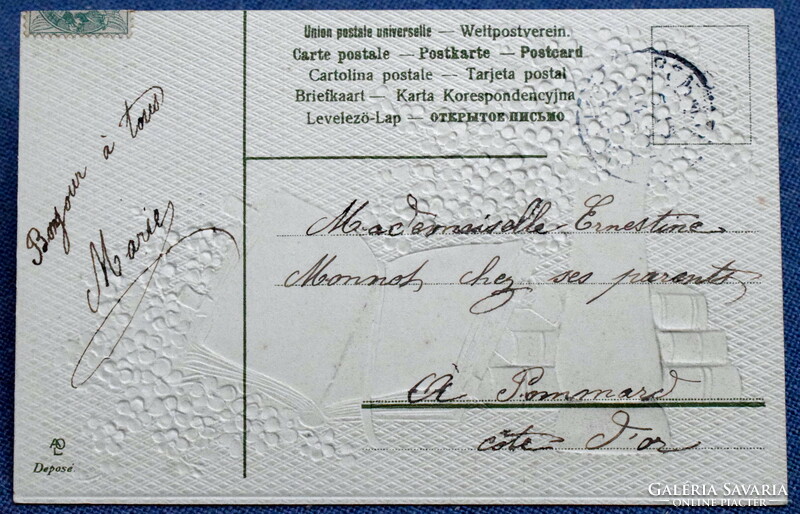 Union postale universelle — Weltpostverein.
Carte postale — Postkarte — Postcard
Cartolina postale — Tarjeta postal
Briefkaart — Karta Korespondencyjna
Levelező-Lap — ОТКРЫТОЕ ПИСЬМО
Bonjour à tous
Marie
Mademoiselle Ernestine
Monnot, chez ses parents
À Pommard
côte d'or
Deposé
GALÉRIA SAVARIA
ONLINE PIACTÉR